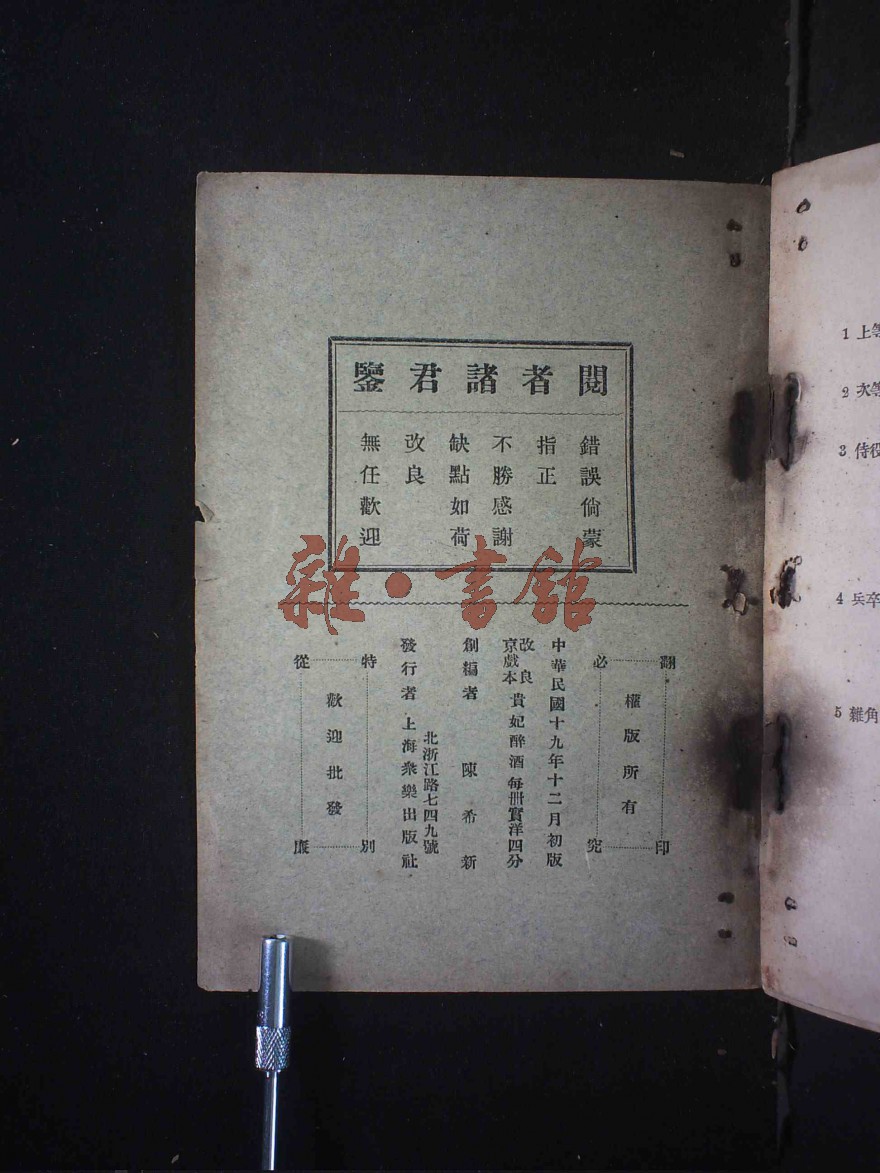 閱者諸君鑒
錯誤倘蒙
指正
不勝感謝
缺點如荷
改良
無任歡迎
雜·書館
翻印必究
權版所有
中華民國十九年十二月初版
改良京戲本 貴妃醉酒 每冊實洋四分
創編者 陳希新
發行者 上海衆樂出版社
北浙江路七四九號
特別從廉
歡迎批發
1 上等
2 次等
3 侍役
4 兵卒
5 雜角